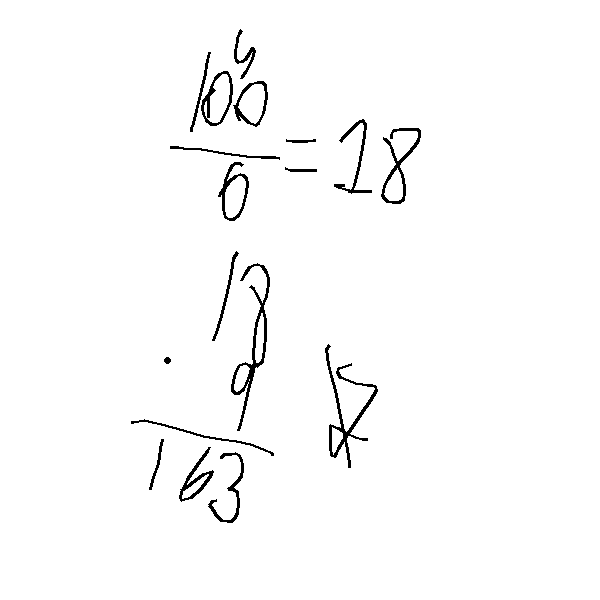 4
100
6
= 18
18
. 9
163